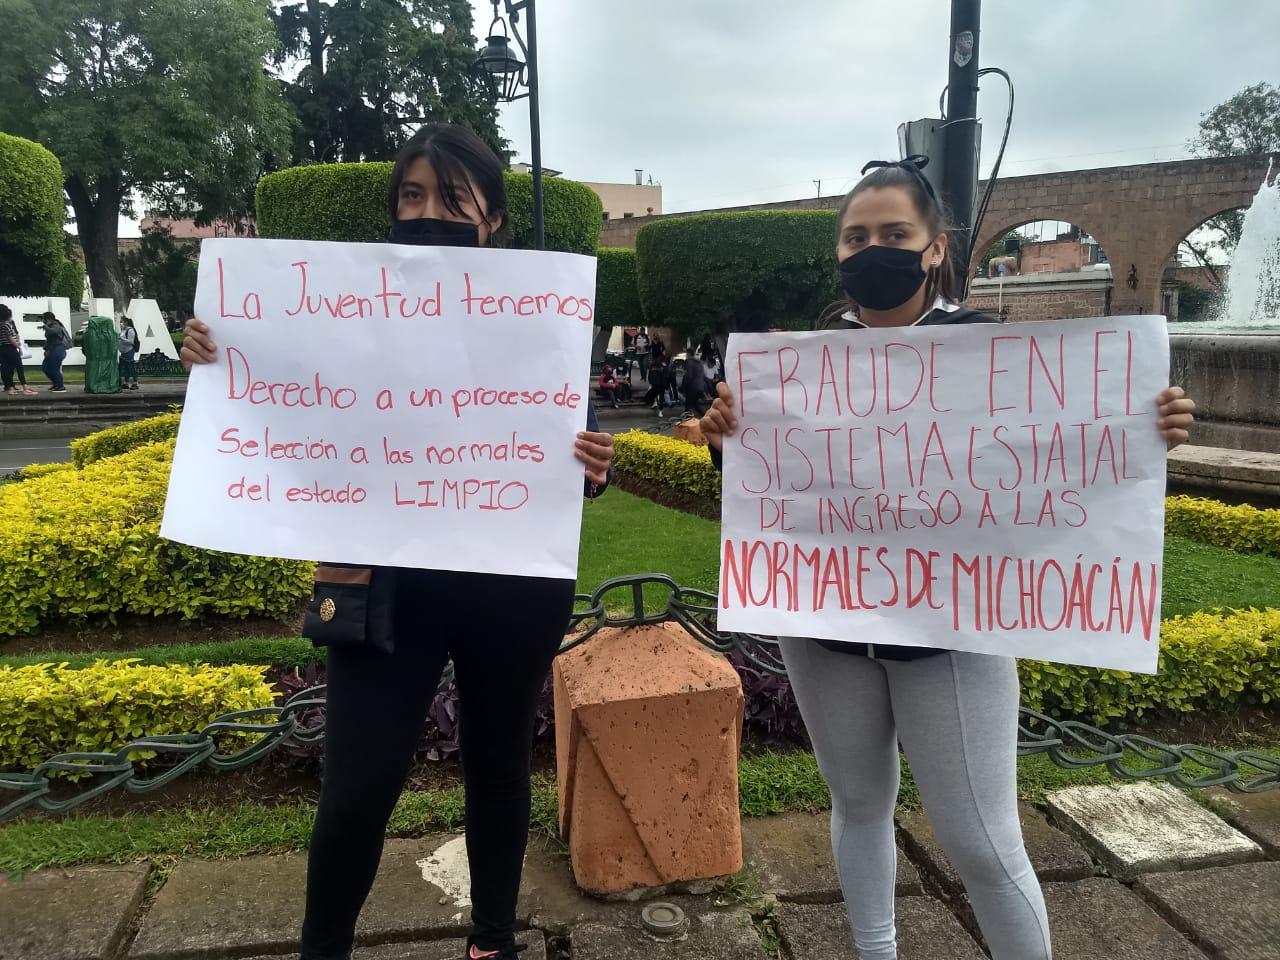 La Juventud tenemos
Derecho a un proceso de
Selección a las normales
del estado LIMPIO
FRAUDE EN EL
SISTEMA ESTATAL
DE INGRESO A LAS
NORMALES DE MICHOÁCÁN
ELIA